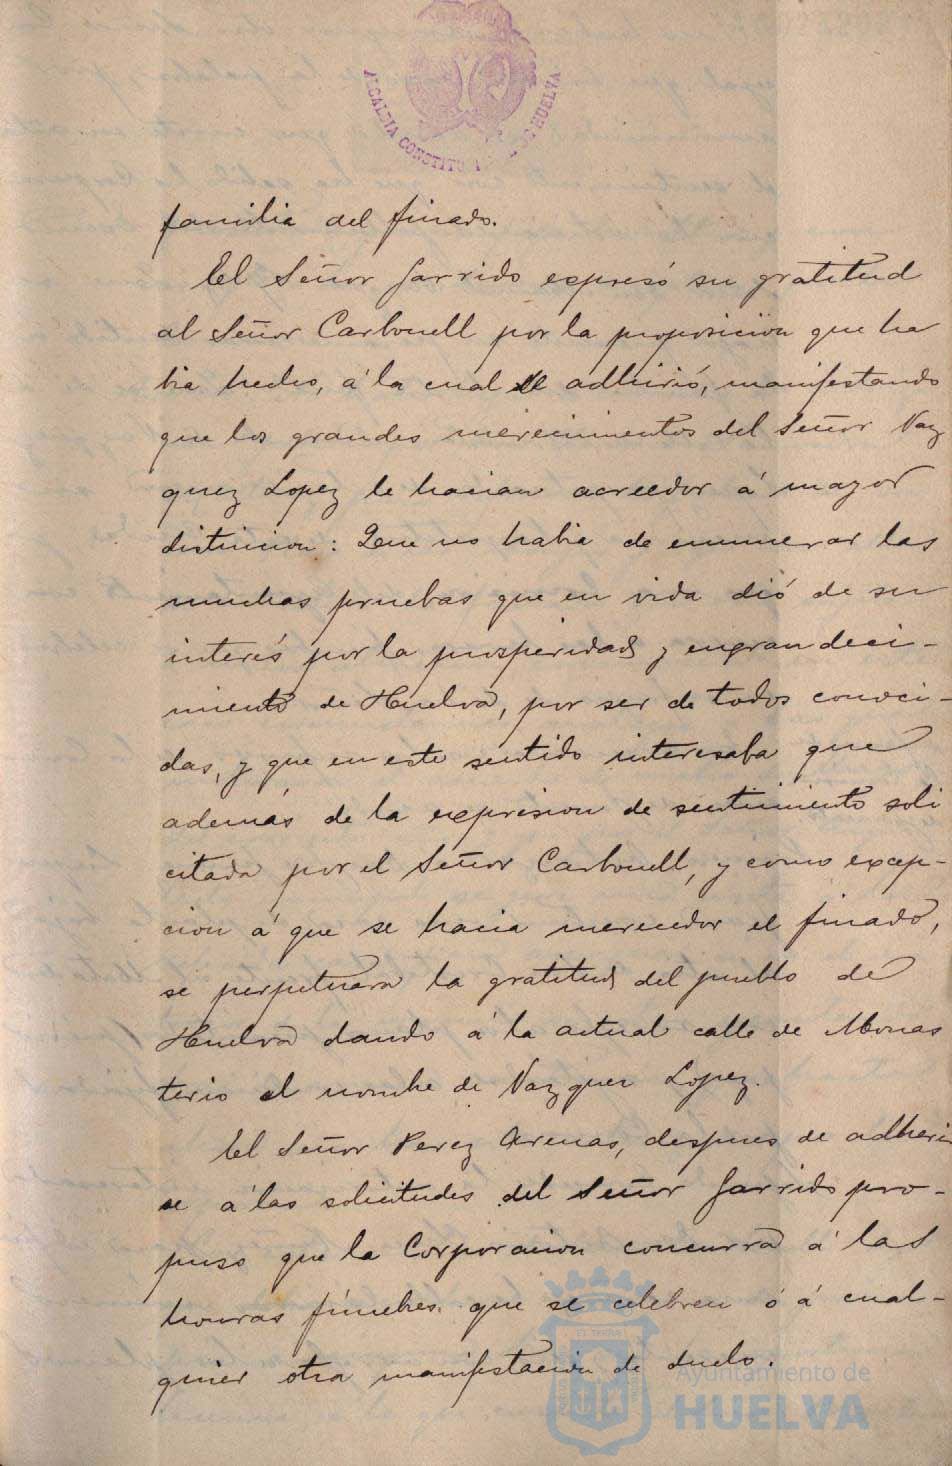 ALCALDIA CONSTITU HUELVA
familia del finado.
El Señor Garrido espresó su gratitud
al Señor Carbonell por la proposicion que ha
bia hecho, á la cual se adhirió, manifestando
que los grandes merecimientos del Señor Vaz
quez Lopez le hacian acreedor á mayor
distincion: Que no habia de enumerar las
muchas pruebas que en vida dió de su
interés por la prosperidad y engrandeci-
miento de Huelva, por ser de todos conoci-
das, y que en este sentido interesaba que
además de la expresion de sentimiento soli
citada por el Señor Carbonell, y como excep-
cion á que se hacia merecedor el finado,
se perpetuara la gratitud del pueblo de
Huelva dando á la actual calle de Monas
terio el nombre de Vazquez Lopez.
El Señor Perez Arenas, despues de adherir
se á las solicitudes del Señor Garrido pro-
puso que la Corporacion concurra á las
honras fúnebres que se celebren ó á cual-
quier otra manifestacion de duelo.
Ayuntamiento de
HUELVA